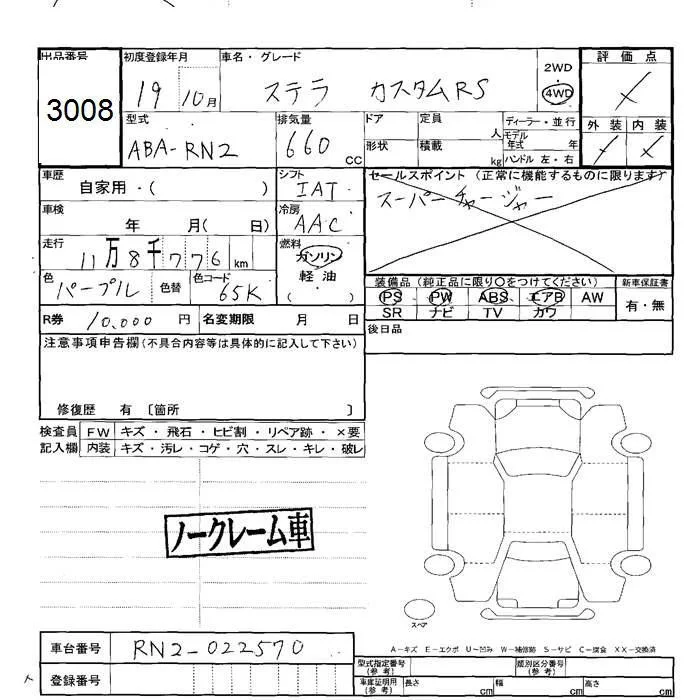 出品番号 初度登録年月 車名・グレード 2WD 評価点
3008 19 10月 ステラ カスタムRS 4WD
型式 排気量 ドア 定員 人 ディーラー・並行 外装 内装
ABA-RN2 660 cc 形状 積載 kg モデル年式 年
ハンドル 左・右
車歴 シフト セールスポイント (正常に機能するものに限ります)
自家用・( ) IAT スーパーチャージャー
車検 冷房
年 月( 日) AAC
走行 燃料
11万8千776km ガソリン
軽油
( )
色 色替 色コード 装備品 (純正品に限り○をつけてください) 新車保証書
パープル 65K PS PW ABS エアB AW 有・無
SR ナビ TV カワ
R券 10,000 円 名変期限 月 日 後日品
注意事項申告欄(不具合内容等は具体的に記入して下さい)
修復歴 有 〔箇所 〕
検査員 FW キズ・飛石・ヒビ割・リペア跡・×要
記入欄 内装 キズ・汚レ・コゲ・穴・スレ・キレ・破レ
ノークレーム車
スペア
車台番号 RN2-022570
A-キズ E-エクボ U-凹み W-補修跡 S-サビ C-腐食 XX-交換済
登録番号
型式指定番号(参考) 類別区分番号(参考)
車庫証明用(参考) 長さ cm 幅 cm 高さ cm